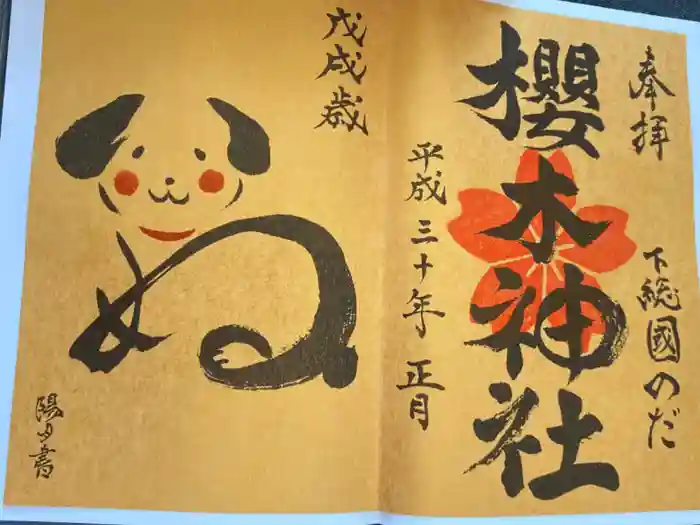 奉拝
下総國のだ
櫻木神社
平成三十年 正月
戊戌歳
いぬ